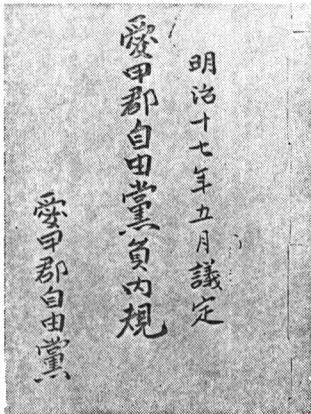 明治十七年五月議定
愛甲郡自由黨員内規
愛甲郡自由黨